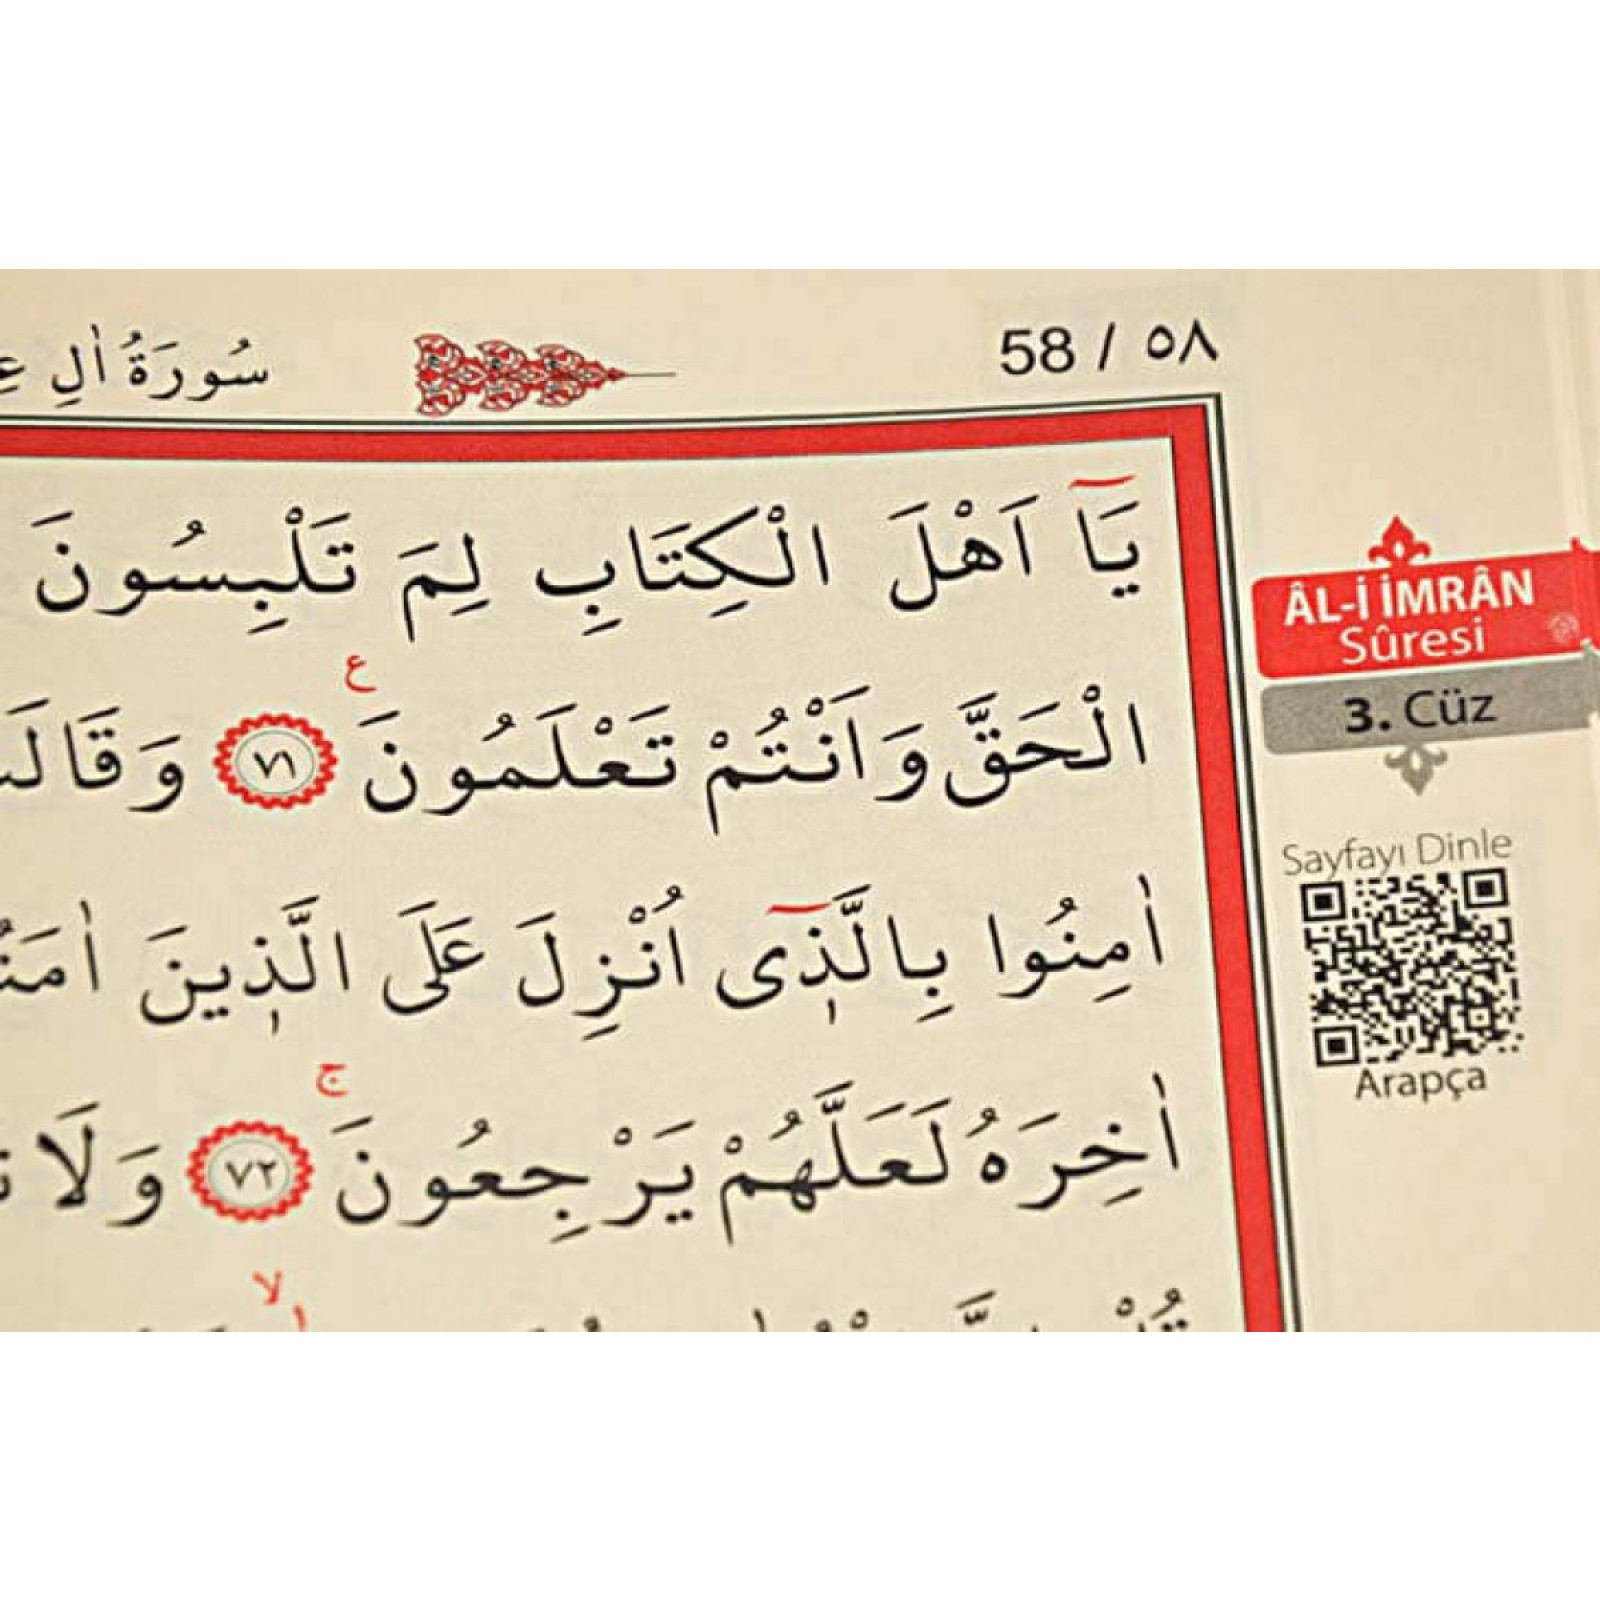 ٥٨ / 58
سُورَةُ اٰلِ
يَٓا اَهْلَ الْكِتَابِ لِمَ تَلْبِسُونَ
الْحَقَّ وَاَنْتُمْ تَعْلَمُونَ ع ٧١
اٰمِنُوا بِالَّذ۪ٓى اُنْزِلَ عَلَى الَّذ۪ينَ
اٰخِرَهُ لَعَلَّهُمْ يَرْجِعُونَ ج ٧٢ وَلَا
ÂL-İ İMRÂN
Sûresi
3. Cüz
Sayfayı Dinle
Arapça